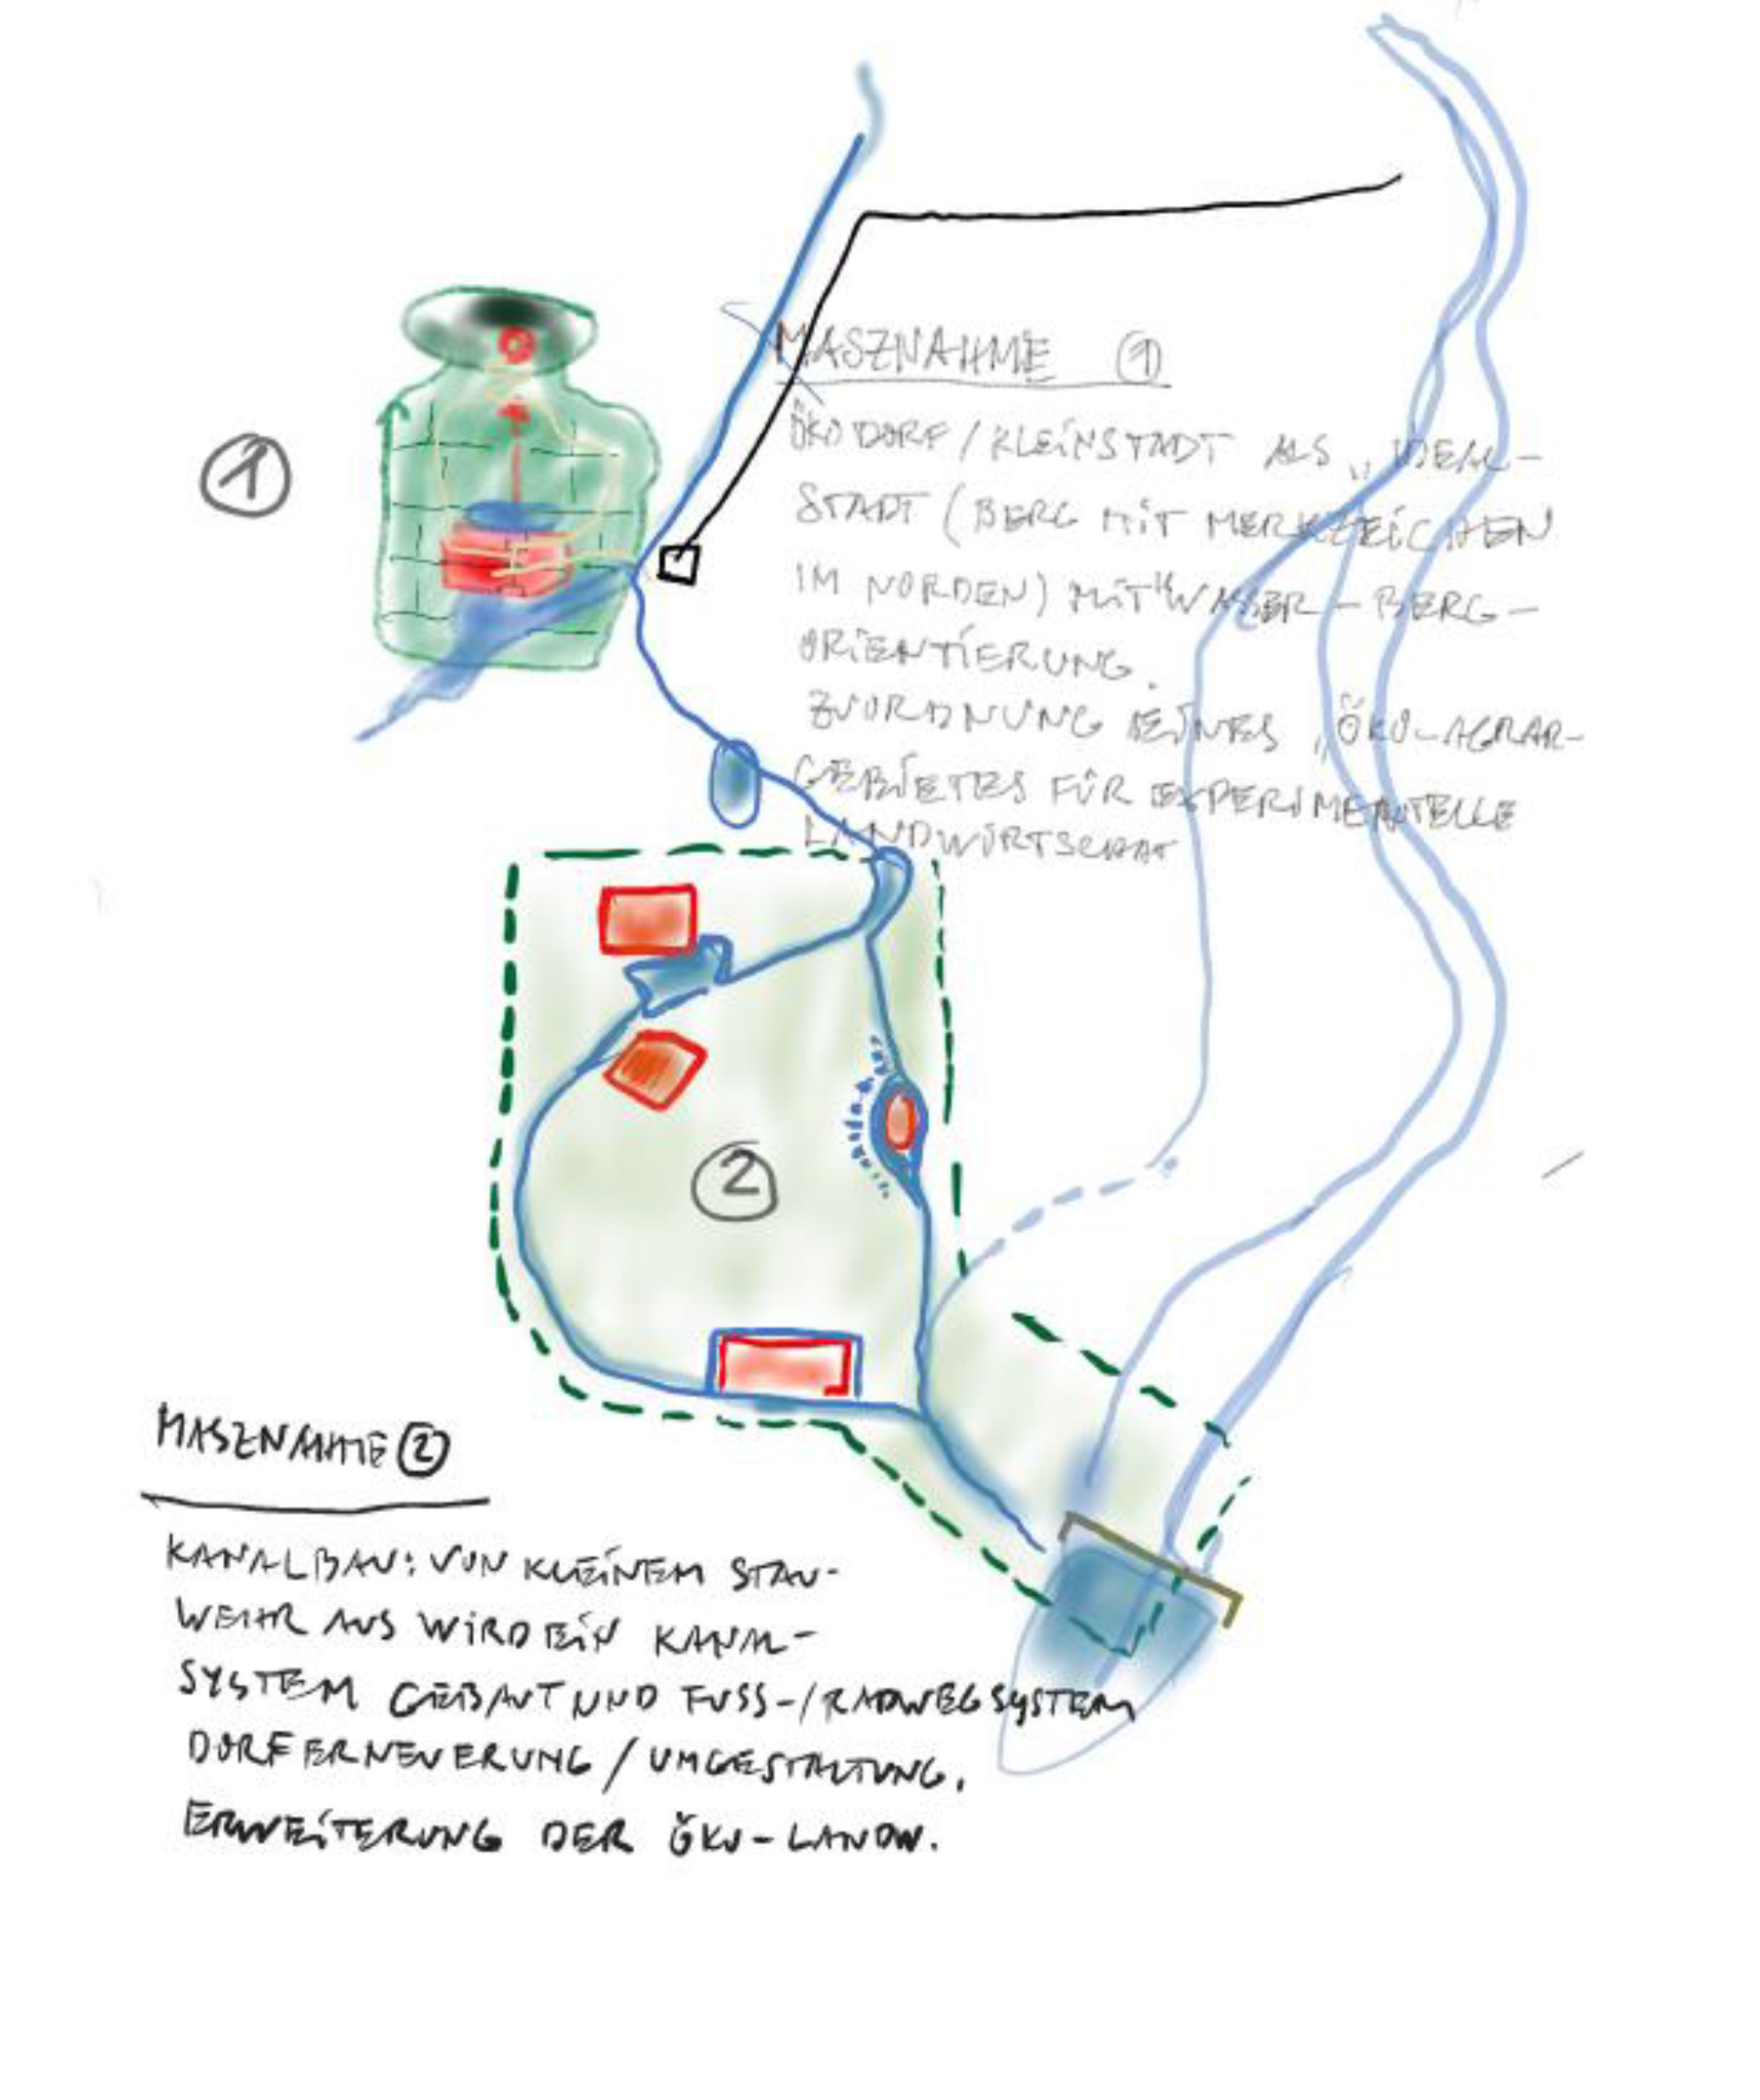 MASZNAHME ①
ÖKODORF / KLEINSTADT ALS „IDEAL-
STADT (BERG MIT MERKZEICHEN
IM NORDEN) MIT "WASSER - BERG -
ORIENTIERUNG.
ZUORDNUNG EINES „ÖKO-AGRAR-
GEBIETES FÜR EXPERIMENTELLE
LANDWIRTSCHAT
①
②
MASZNAHME ②
KANALBAU: VON KLEINEM STAU-
WEHR AUS WIRD EIN KANAL-
SYSTEM GEBAUT UND FUSS-/RADWEGSYSTEM
DORFERNEUERUNG / UMGESTALTUNG.
ERWEITERUNG DER ÖKO-LANDW.